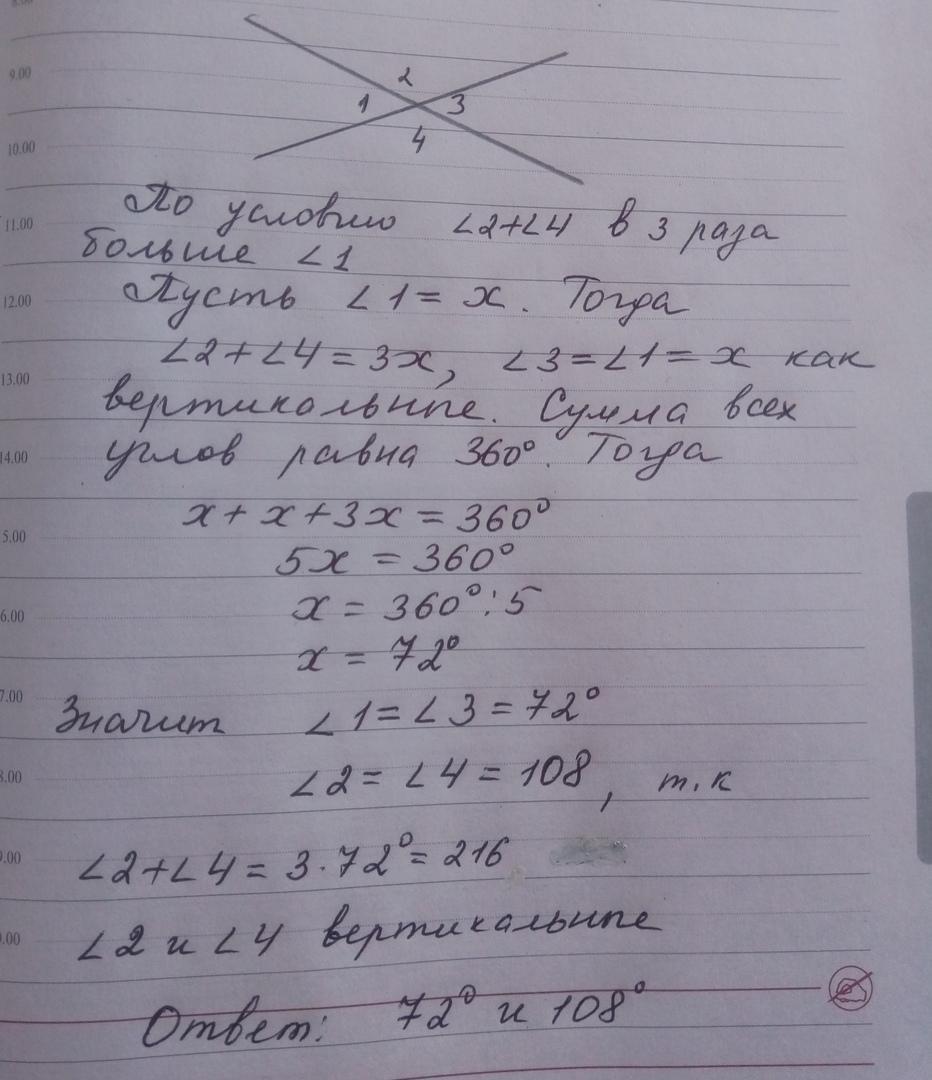 8.00
9.00
10.00
11.00
12.00
13.00
14.00
5.00
6.00
7.00
8.00
9.00
0.00
2
1 3
4
По условию ∠2+∠4 в 3 раза
больше ∠1
Пусть ∠1 = x. Тогда
∠2+∠4 = 3x, ∠3=∠1= x как
вертикальные. Сумма всех
углов равна 360°. Тогда
x + x + 3x = 360°
5x = 360°
x = 360° : 5
x = 72°
Значит ∠1=∠3=72°
∠2=∠4=108, т.к
∠2+∠4=3·72°=216
∠2 и ∠4 вертикальные
Ответ: 72° и 108°